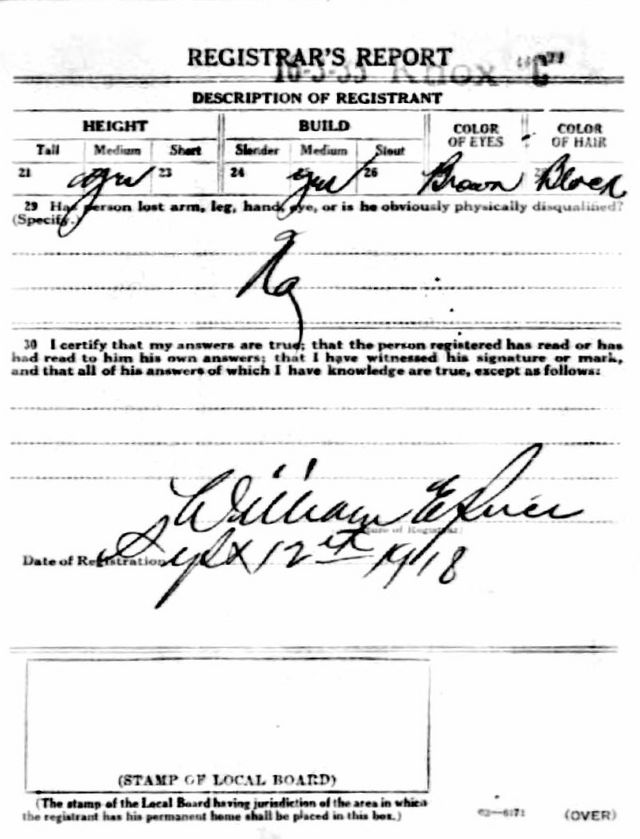 REGISTRAR'S REPORT
10-3-35 Knox "C"
DESCRIPTION OF REGISTRANT
HEIGHT BUILD COLOR OF EYES COLOR OF HAIR
Tall Medium Short Slender Medium Stout
21 yes 23 24 yes 26 Brown Black
29 Has person lost arm, leg, hand, eye, or is he obviously physically disqualified?
(Specify.)
No
30 I certify that my answers are true; that the person registered has read or has
had read to him his own answers; that I have witnessed his signature or mark,
and that all of his answers of which I have knowledge are true, except as follows:
William E
Date of Registration Sept 12th 1918
(STAMP OF LOCAL BOARD)
(The stamp of the Local Board having jurisdiction of the area in which
the registrant has his permanent home shall be placed in this box.)
(OVER)